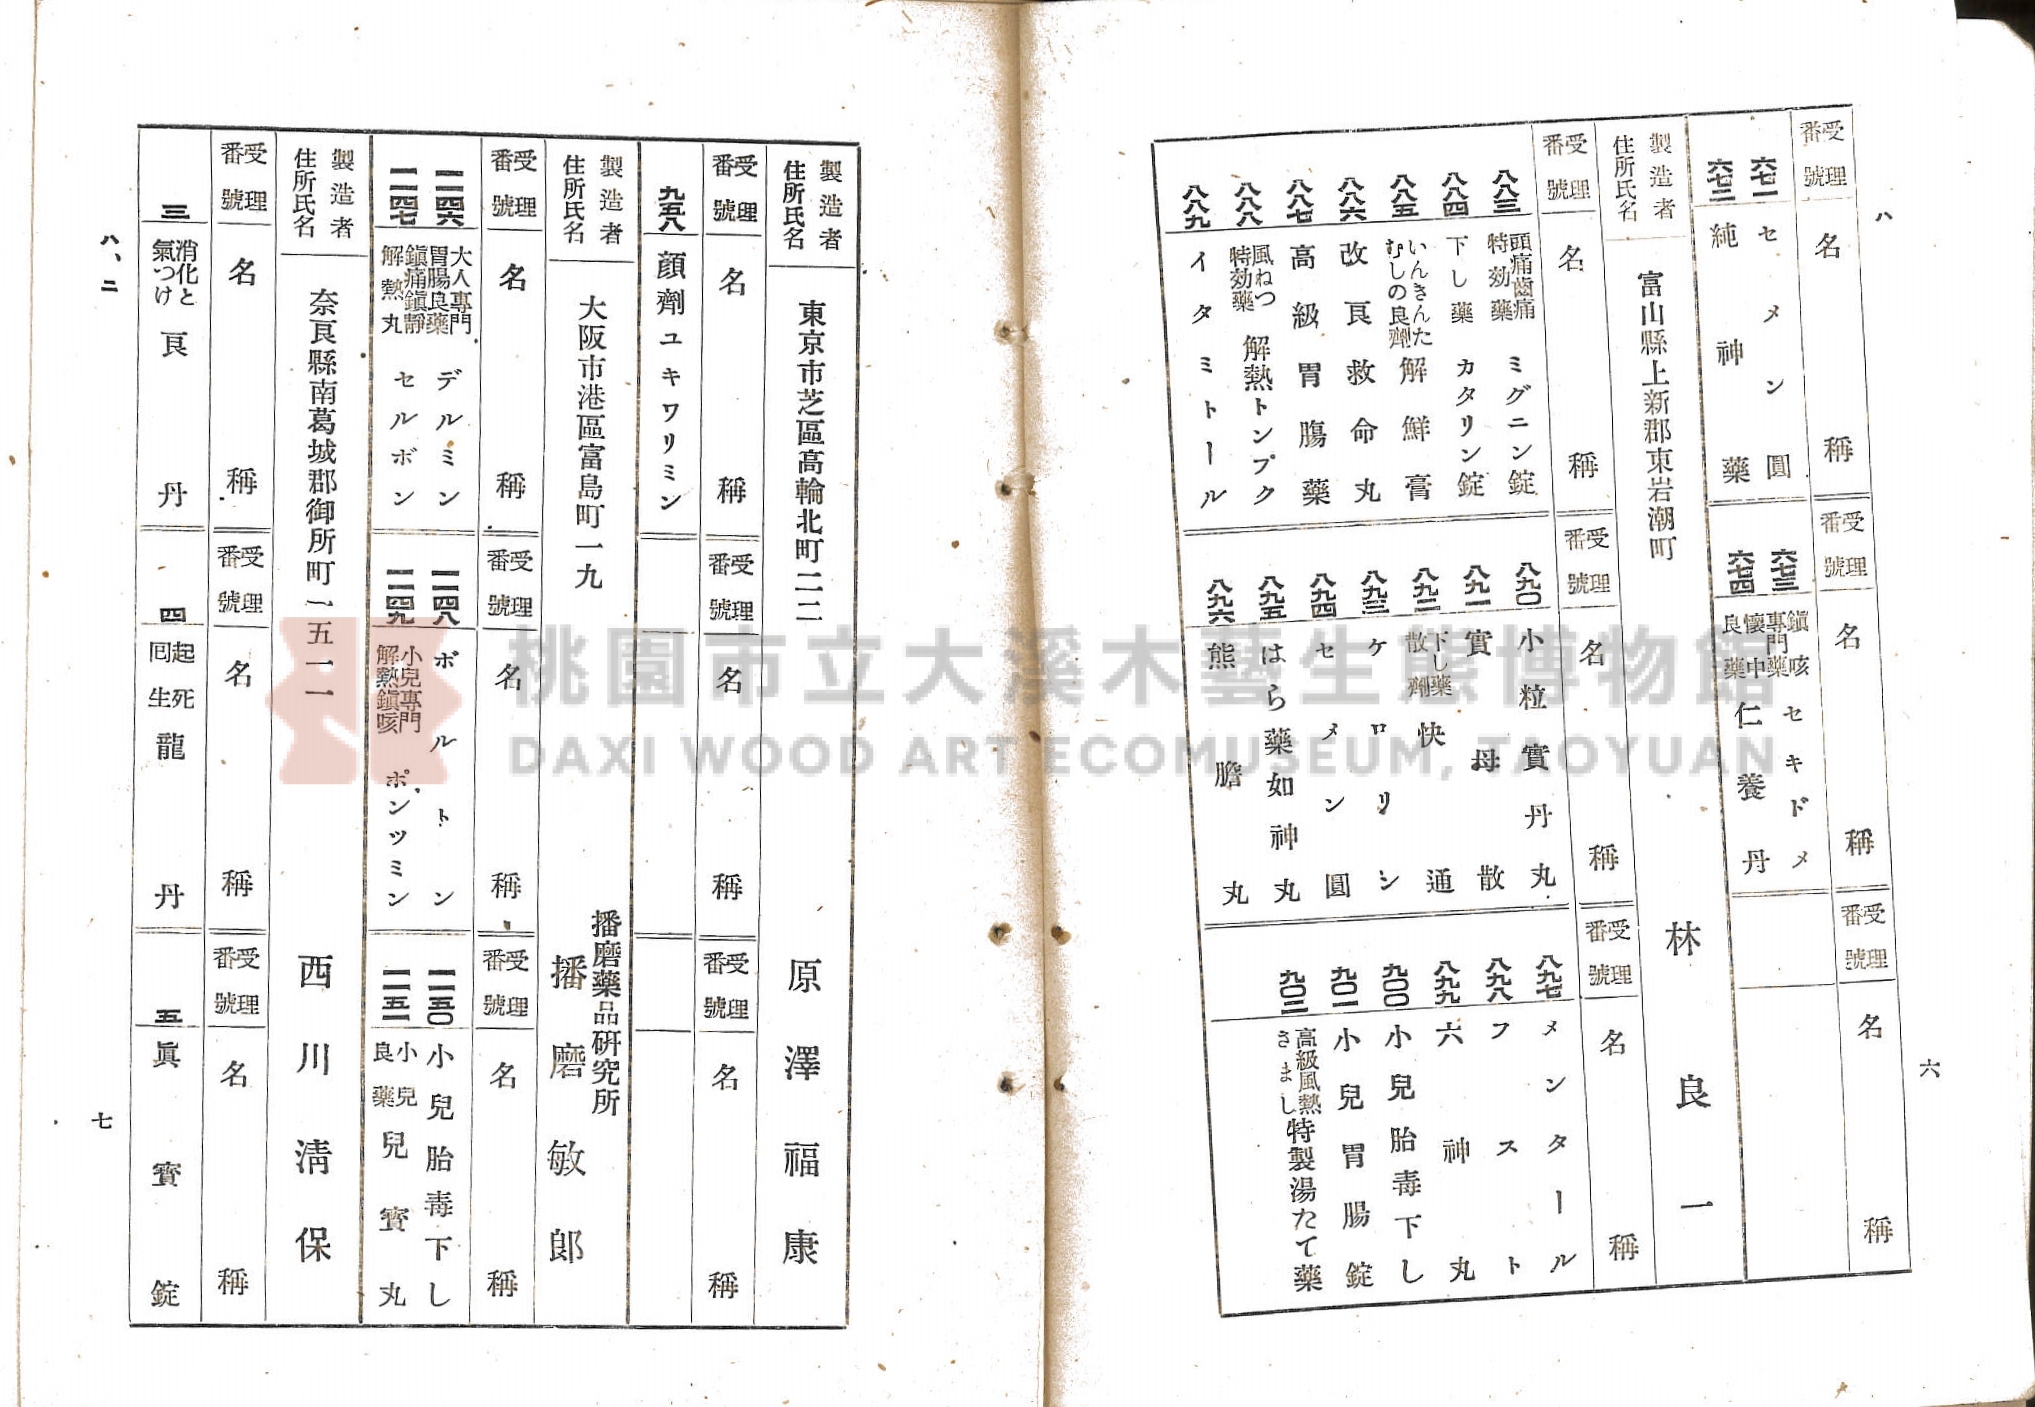 八
六
受理番號
名稱
受理番號
名稱
受理番號
名稱
六七一
セメン圓
六七二
純神藥
六七三
鎭咳專門藥 セキドメ
六七四
懷中良藥 仁養丹
製造者住所氏名
富山縣上新郡東岩潮町
林良一
受理番號
名稱
受理番號
名稱
受理番號
名稱
八八三
頭痛齒痛特効藥 ミグニン錠
八八四
下し藥 カタリン錠
八八五
いんきんたむしの良劑 解鮮膏
八八六
改良救命丸
八八七
高級胃膓藥
八八八
風ねつ特効藥 解熱トンプク
八八九
イタミトール
八九〇
小粒實丹丸
八九一
實母散
八九二
下し藥散劑 快通
八九三
ケロリン
八九四
セメン圓
八九五
はら藥如神丸
八九六
熊膽丸
八九七
メンタール
八九八
フスト
八九九
六神丸
九〇〇
小兒胎毒下し
九〇一
小兒胃腸錠
九〇二
高級風熱きまし 特製湯たて藥
製造者住所氏名
東京市芝區高輪北町二二
原澤福康
受理番號
名稱
受理番號
名稱
受理番號
名稱
九五八
顏劑ユキワリミン
製造者住所氏名
大阪市港區富島町一九
播磨藥品研究所
播磨敏郎
受理番號
名稱
受理番號
名稱
受理番號
名稱
一一四六
大人專門胃腸良藥 デルミン
一一四七
鎭痛鎭靜解熱丸 セルボン
一一四八
ボルトン
一一四九
小兒專門解熱鎭咳 ポンツミン
一一五〇
小兒胎毒下し
一一五一
小兒良藥 兒寶丸
製造者住所氏名
奈良縣南葛城郡御所町一五一一
西川淸保
受理番號
名稱
受理番號
名稱
受理番號
名稱
三
消化と氣つけ 良丹
四
起死回生 龍丹
五
眞寶錠
八、二
七
桃園市立大溪木藝生態博物館
DAXI WOOD ART ECOMUSEUM, TAOYUAN